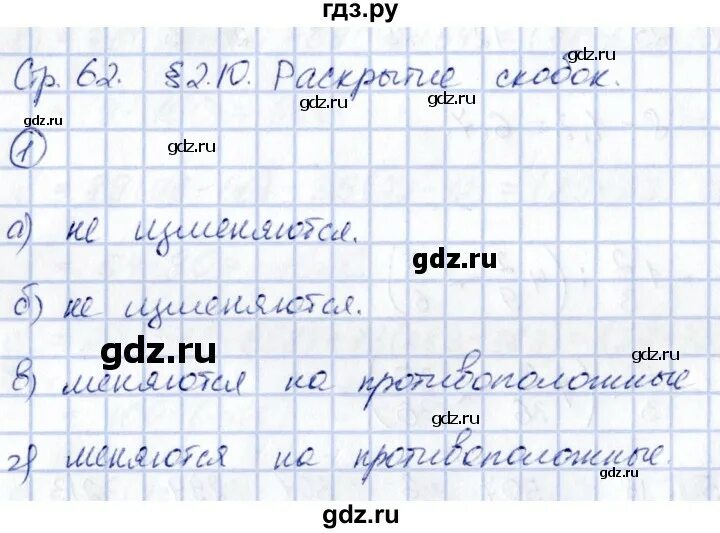 гдз.ру
Стр. 62. § 2.10. Раскрытие скобок.
gdz.ru gdz.ru gdz.ru gdz.ru
1 gdz.ru
а) не изменяются.
gdz.ru
б) не изменяются.
gdz.ru gdz.ru
в) меняются на противоположные
gdz.ru
г) меняются на противоположные.
gdz.ru
gdz.ru